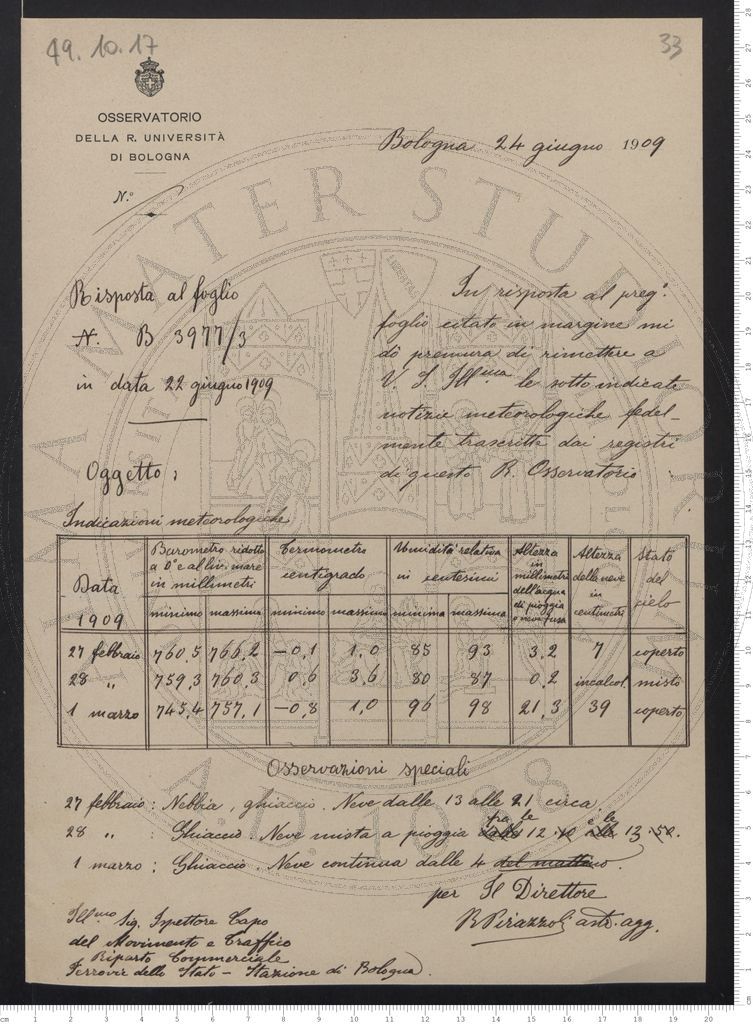 49.10.17
33
OSSERVATORIO
DELLA R. UNIVERSITÀ
DI BOLOGNA
N.°
Bologna 24 giugno 1909
Risposta al foglio
N. B 3977/3
in data 22 giugno 1909
Oggetto:
In risposta al preg.°
foglio citato in margine mi
dò premura di rimettere a
V. S. Ill.ma le sotto indicate
notizie meteorologiche fedel-
mente trascritte dai registri
di questo R. Osservatorio.
Indicazioni meteorologiche
Data 1909 | Barometro ridotto a 0° e al liv. mare in millimetri | Termometro centigrado | Umidità relativa in centesimi | Altezza in millimetri dell'acqua di pioggia o neve fusa | Altezza della neve in centimetri | Stato del cielo
minimo | massimo | minimo | massimo | minima | massima
27 febbraio | 760,5 | 766,2 | -0,1 | 1,0 | 85 | 93 | 3,2 | 7 | coperto
28 " | 759,3 | 760,3 | 0,6 | 3,6 | 80 | 87 | 0,2 | incalcol. | misto
1 marzo | 745,4 | 757,1 | -0,8 | 1,0 | 96 | 98 | 21,3 | 39 | coperto
Osservazioni speciali
27 febbraio: Nebbia, ghiaccio. Neve dalle 13 alle 21 circa.
28 " : Ghiaccio. Neve mista a pioggia fra le 12.10 e le 13.50.
1 marzo: Ghiaccio. Neve continua dalle 4 del mattino.
per Il Direttore
R Pirazzoli astr. agg.
Ill.mo Sig. Ispettore Capo
del Movimento e Traffico
Riparto Commerciale
Ferrovie dello Stato - Stazione di Bologna.
ALMA MATER STUDIORUM
A.D. 1088
LIBERTAS